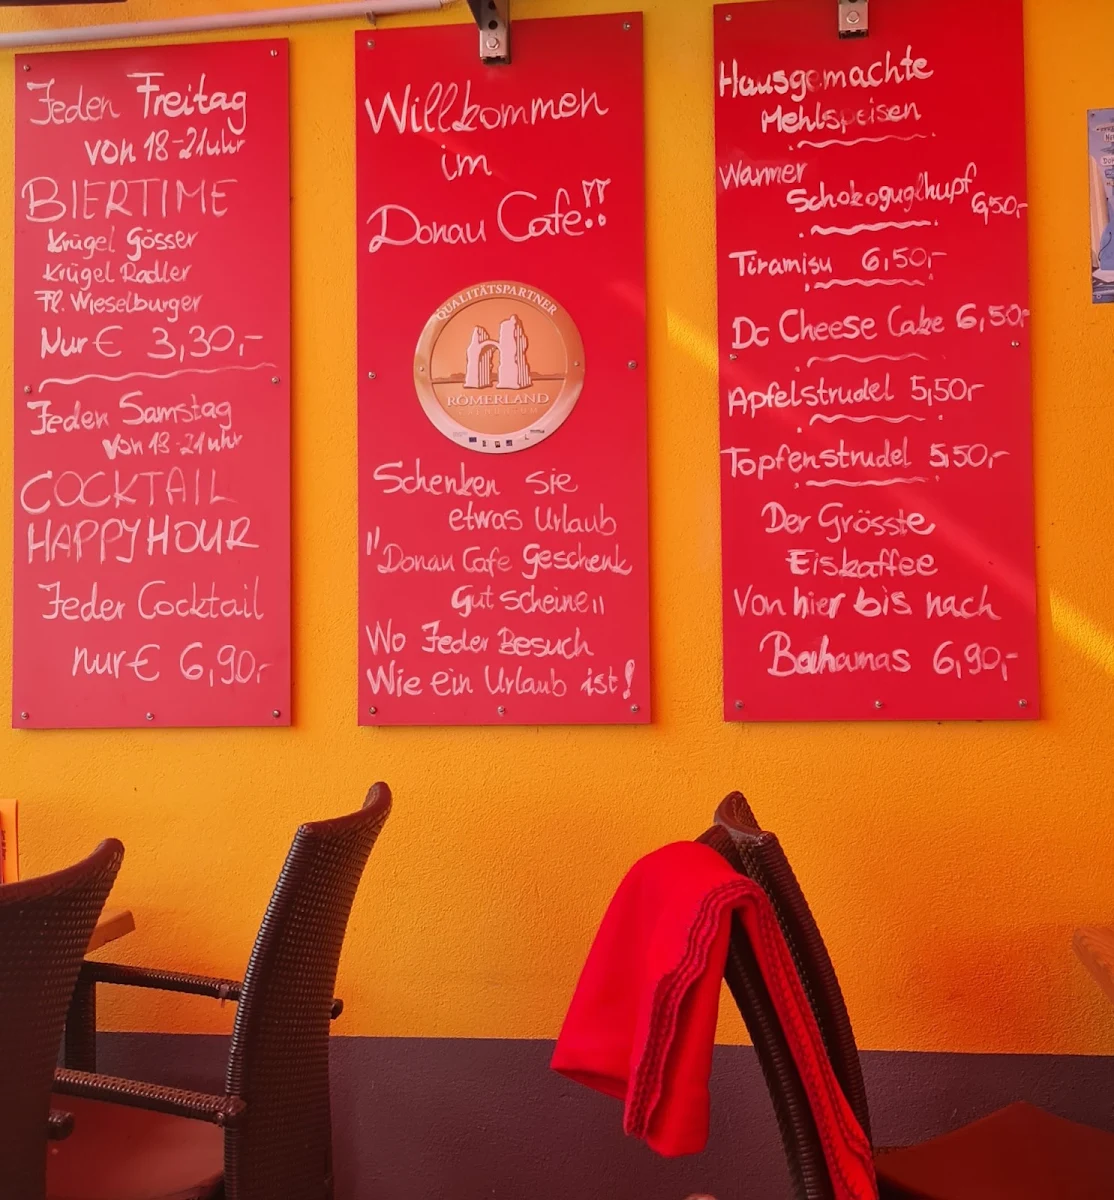 Jeden Freitag
von 18-21uhr
BIERTIME
Krügel Gösser
Krügel Radler
Fl. Wieselburger
Nur € 3,30,-
Jeden Samstag
von 18-21uhr
COCKTAIL
HAPPY HOUR
Jeder Cocktail
nur € 6,90,-
Willkommen
im
Donau Cafe!!
QUALITÄTSPARTNER
RÖMERLAND
Schenken sie
etwas Urlaub
"Donau Cafe Geschenk
Gutscheine"
Wo Jeder Besuch
Wie ein Urlaub ist!
Hausgemachte
Mehlspeisen
Warmer
Schokoguglhupf 6,50,-
Tiramisu 6,50,-
Dc Cheese Cake 6,50,-
Apfelstrudel 5,50,-
Topfenstrudel 5,50,-
Der Grösste
Eiskaffee
Von hier bis nach
Bahamas 6,90,-